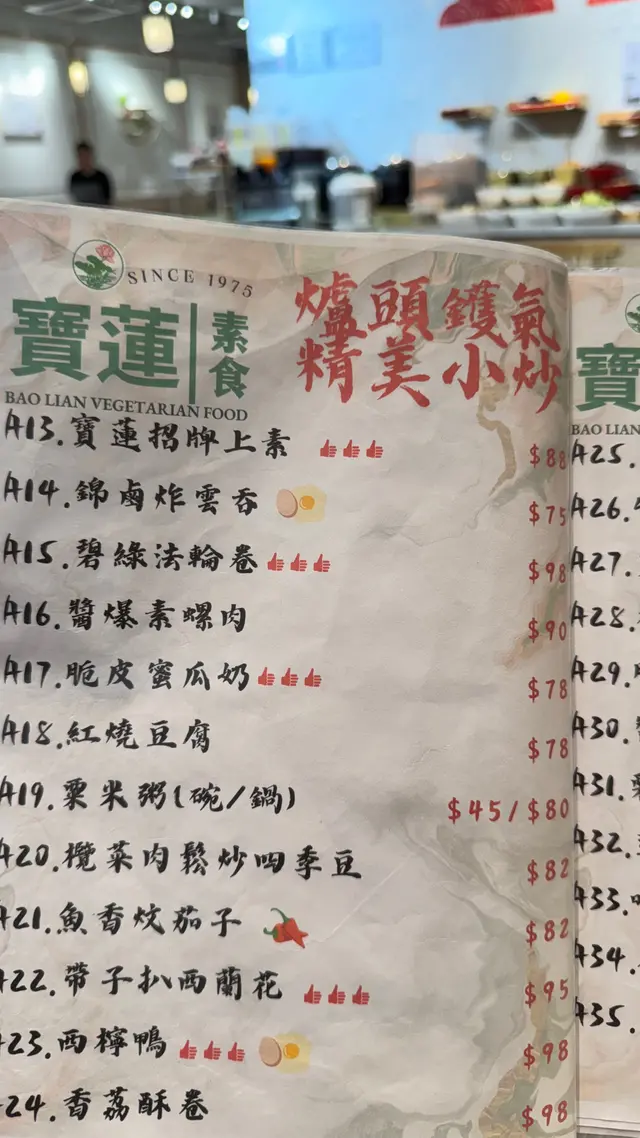 SINCE 1975
寶蓮 素食
BAO LIAN VEGETARIAN FOOD
爐頭鑊氣
精美小炒
A13.寶蓮招牌上素 $88
A14.錦鹵炸雲吞 $75
A15.碧綠法輪卷 $98
A16.醬爆素螺肉 $90
A17.脆皮蜜瓜奶 $78
A18.紅燒豆腐 $78
A19.粟米粥(碗/鍋) $45/$80
A20.欖菜肉鬆炒四季豆 $82
A21.魚香炆茄子 $82
A22.帶子扒西蘭花 $95
23.西檸鴨 $98
24.香荔酥卷 $98
寶
BAO LIAN
A25.
A26.
A27.
A28.
A29.
A30.
A31.
A32.
A33.
A34.
A35.